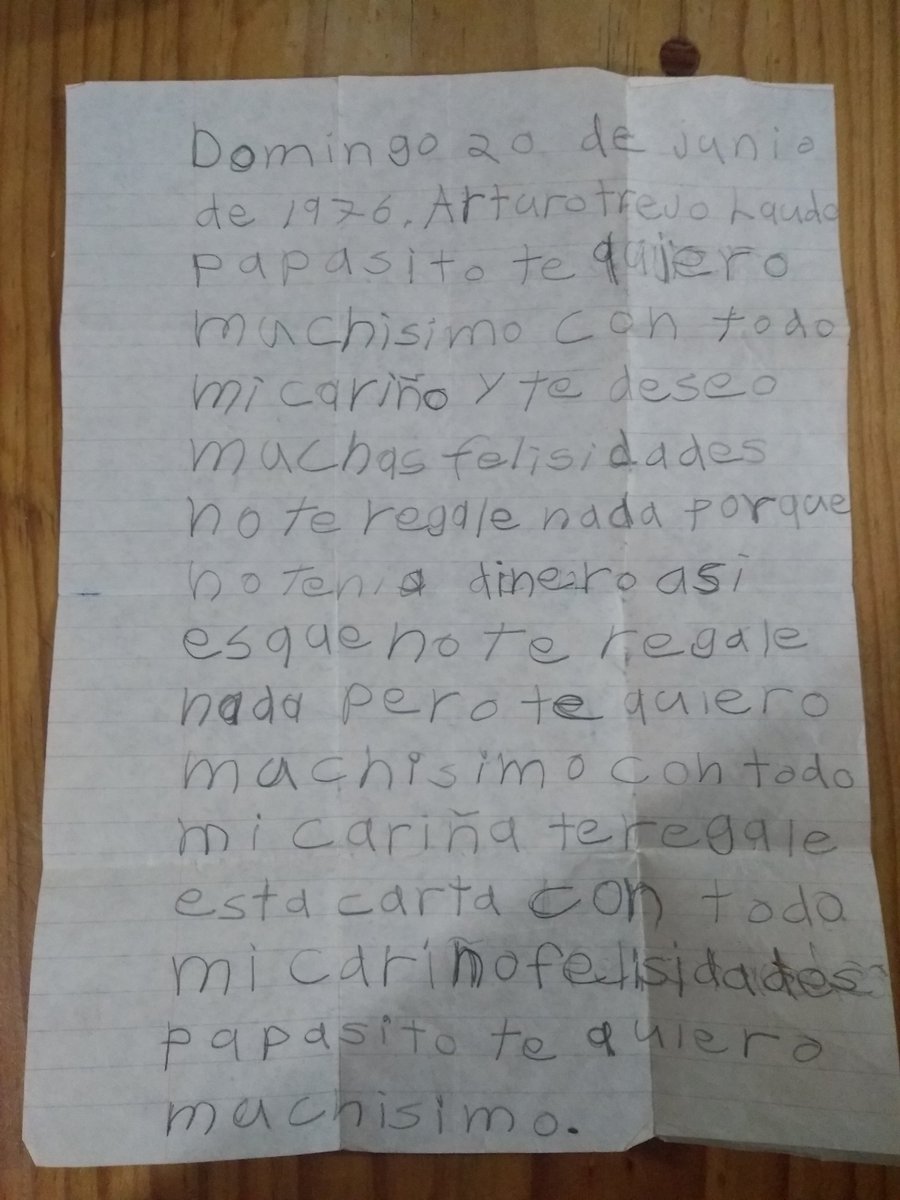 Domingo 20 de junio
de 1976. Arturo trejo Laudo
papasito te quiero
muchisimo con todo
mi cariño y te deseo
muchas felisidades
no te regale nada porque
no tenia dinero asi
es que no te regale
nada pero te quiero
machisimo con todo
mi cariña te regale
esta carta con todo
mi cariño felisidades
papasito te quiero
machisimo.